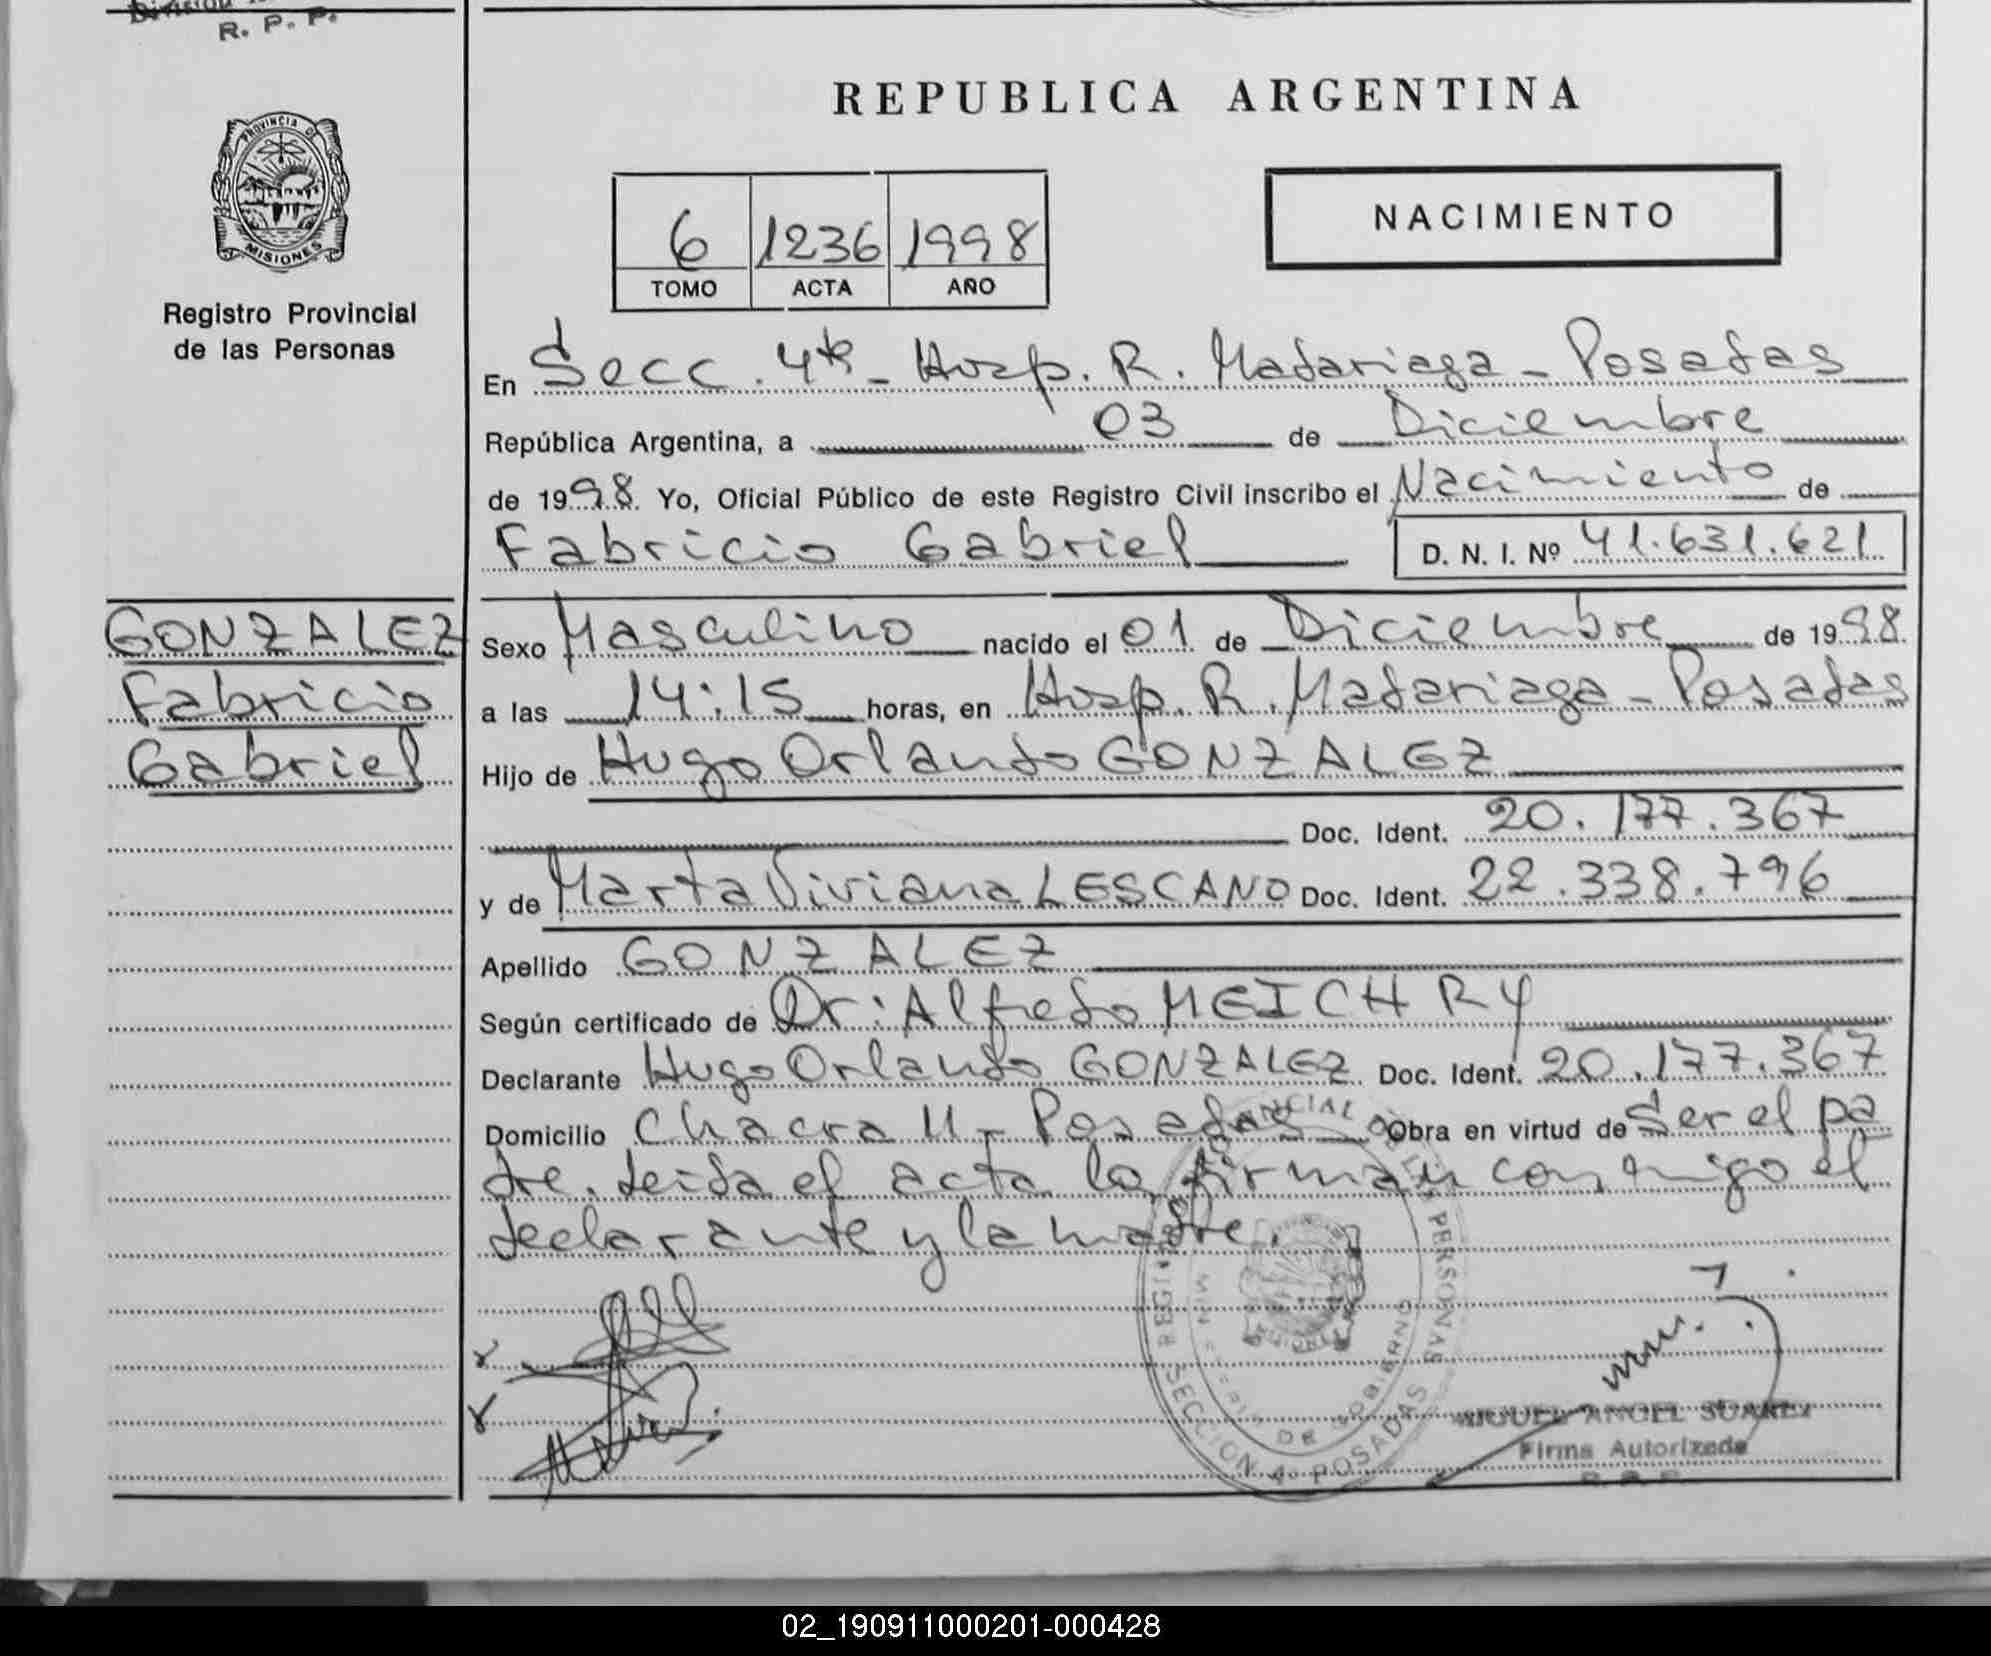 R. P. P.
REPUBLICA ARGENTINA
PROVINCIA DE
MISIONES
Registro Provincial
de las Personas
6 1236 1998
TOMO ACTA AÑO
NACIMIENTO
En Secc. 4ta - Hosp. R. Madariaga - Posadas
República Argentina, a 03 de Diciembre
de 1998. Yo, Oficial Público de este Registro Civil inscribo el Nacimiento de
Fabricio Gabriel D. N. I. Nº 41.631.621
GONZALEZ
Fabricio
Gabriel
Sexo Masculino nacido el 01 de Diciembre de 1998.
a las 14:15 horas, en Hosp. R. Madariaga - Posadas
Hijo de Hugo Orlando GONZALEZ
Doc. Ident. 20.177.367
y de Marta Viviana LESCANO Doc. Ident. 22.338.796
Apellido GONZALEZ
Según certificado de Dr: Alfredo MEICHRY
Declarante Hugo Orlando GONZALEZ Doc. Ident. 20.177.367
Domicilio Chacra 11 - Posadas Obra en virtud de Ser el pa
dre. Leida el acta la firman conmigo el
declarante y la madre.
SECCION 4º POSADAS
DE GOBIERNO
MIGUEL ANGEL SUAREZ
Firma Autorizada
02_190911000201-000428